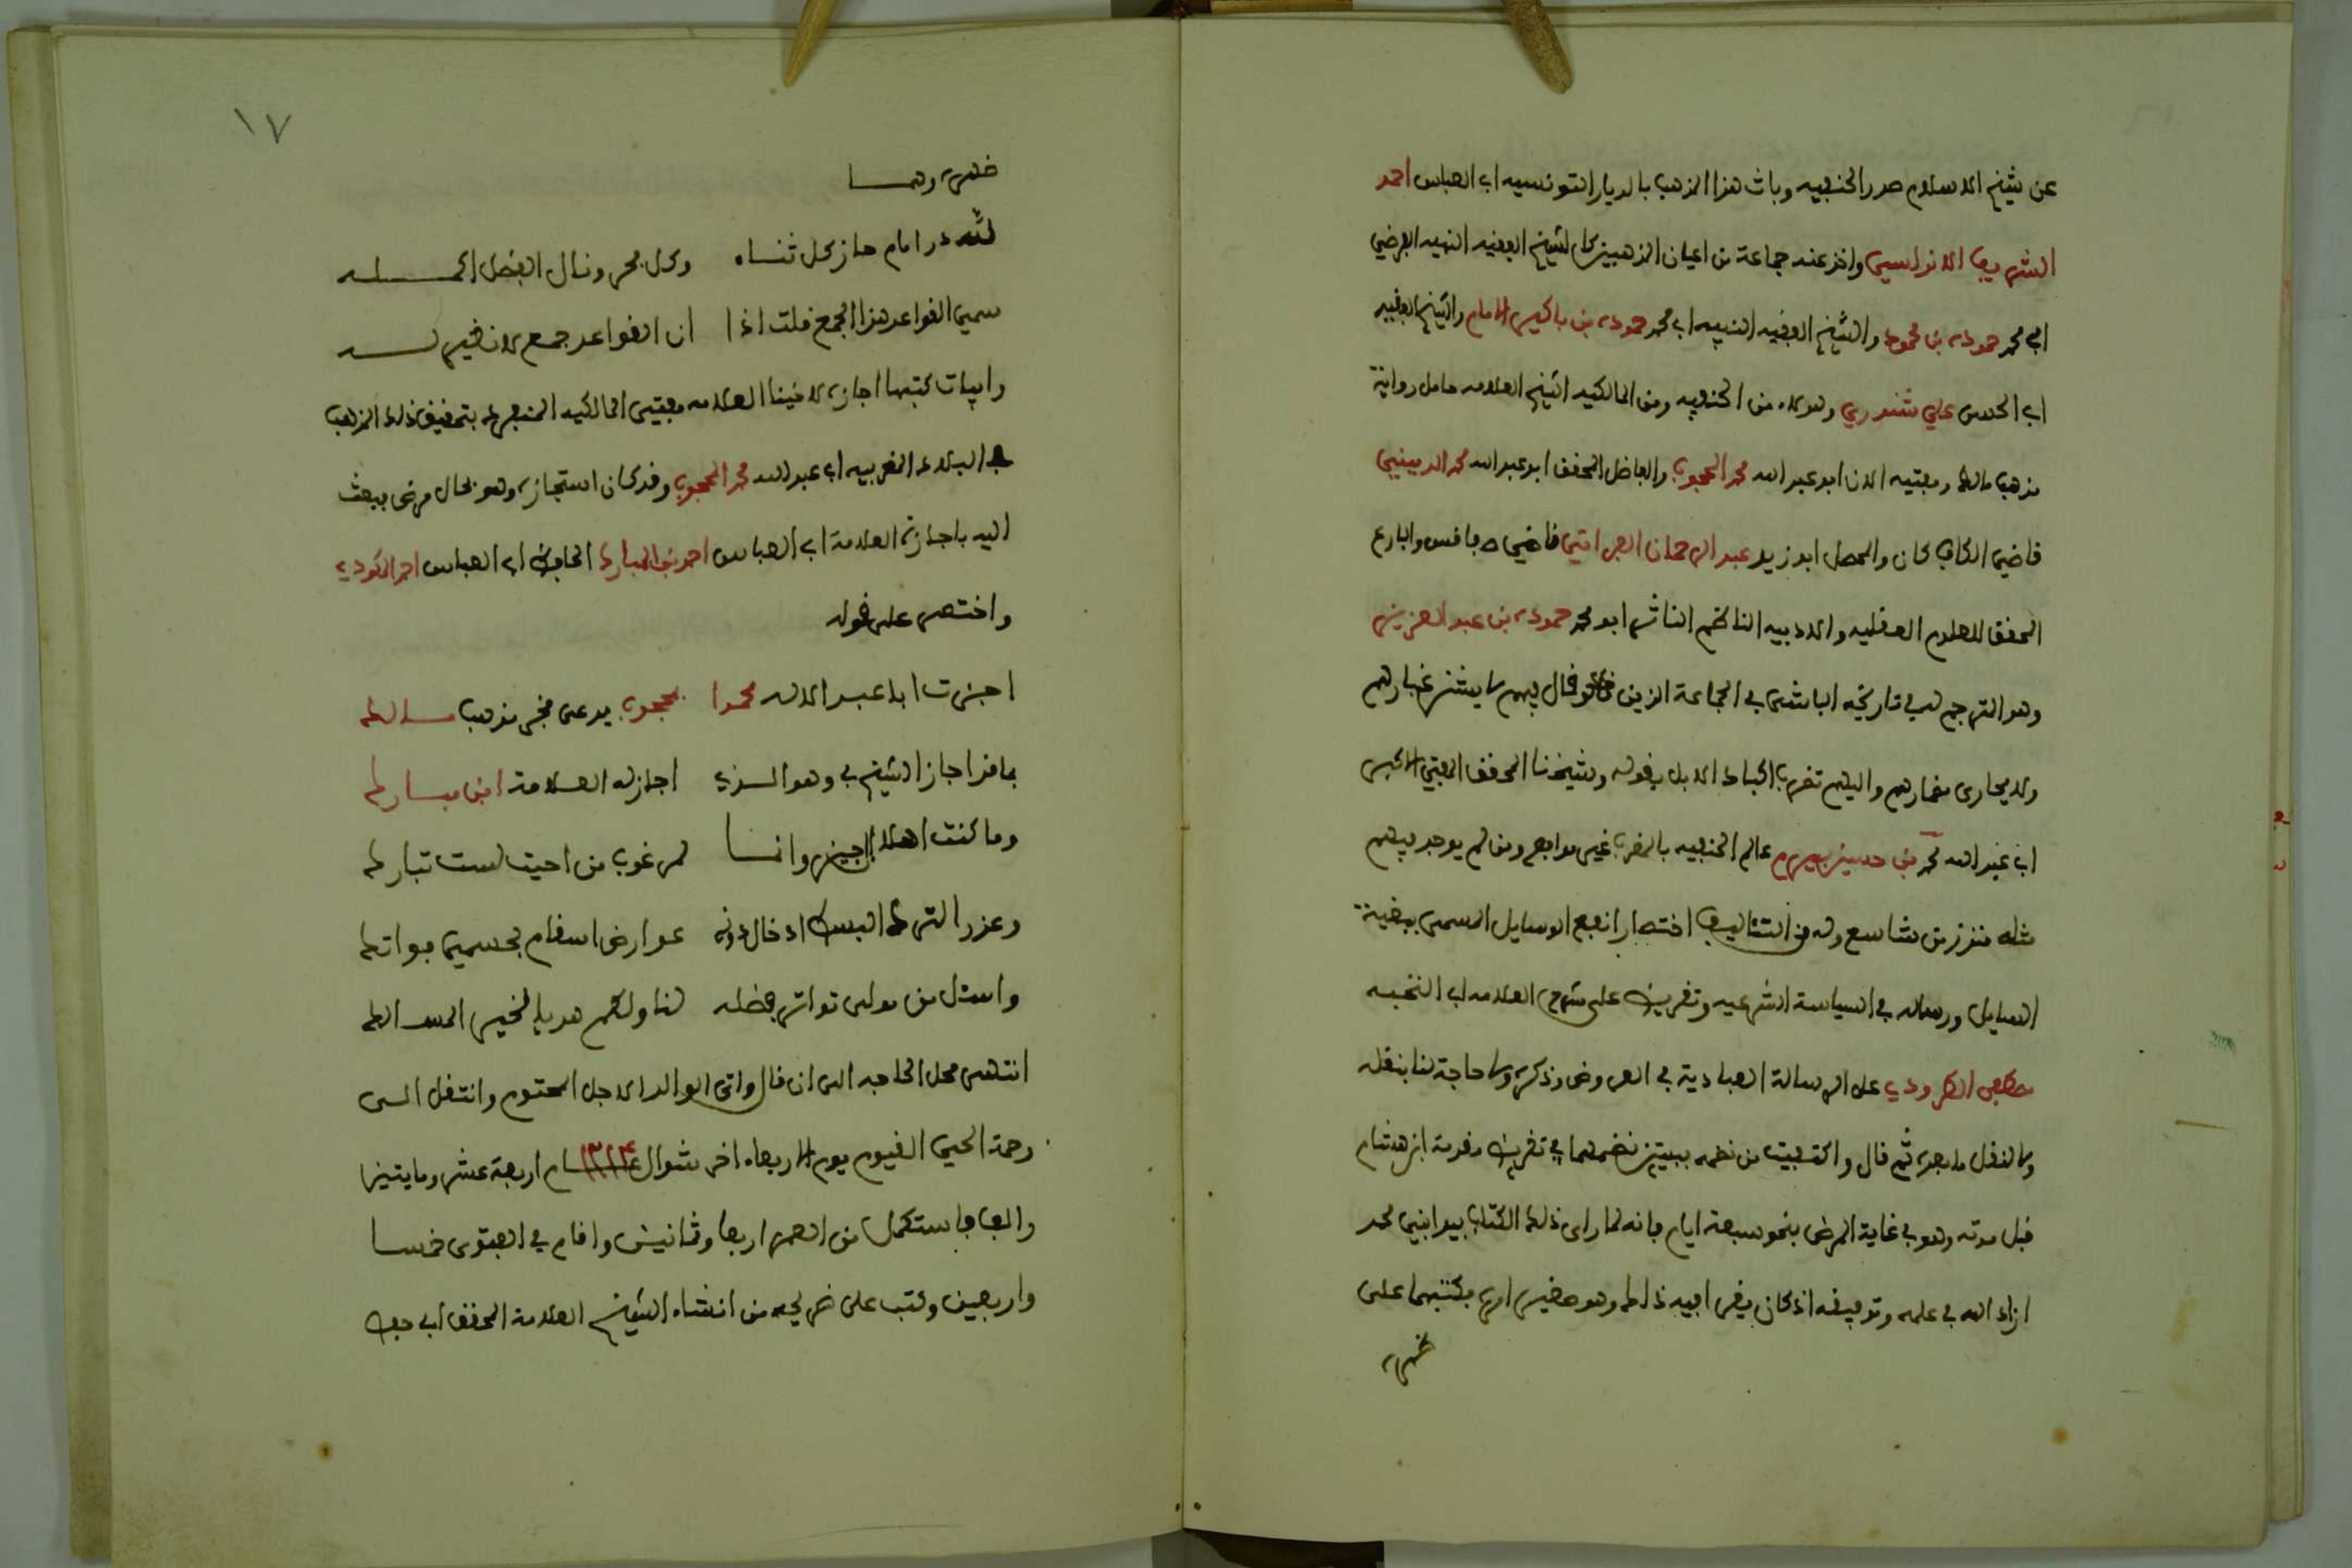 عن شيخ الاسلام صدر الحنفيه وباث هذا المذهب بالديار التونسيه ابي العباس احمد
الشريف الاندلسي واخذ عنه جماعة من اعيان المذهبين كالشيخ الفقيه النبيه الفرضي
ابي محمد حموده بن محمود والشيخ الفقيه النبيه ابي محمد حموده بن باكير الامام والشيخ الفقيه
ابي الحسن علي شندري وهولاء من الحنفيه ومن المالكيه الشيخ العلامه حامل رواية
مذهب مالك ومفتيه الان ابو عبد الله محمد المحجوب والفاضل المحقق ابو عبد الله محمد الدبيني
قاضي الكاف كان والمحصل ابو زيد عبد الرحمان العراقي قاضي صفاقس والبارع
المحقق للعلوم العقليه والادبيه الناظم الناثر ابو محمد حموده بن عبد العزيز
وهو المترجم له في تاريخه الباشي في الجماعة الذين قال فيهم لا يشق غبارهم
ولا يجارى مضمارهم واليهم تضرب اكباد الابل بقوله وشيخنا المحقق المفتي الاكبر
ابي عبد الله محمد بن حسين بيرم عالم الحنفيه بالمغرب غير مدافع ومن لم يوجد فيهم
مثله منذ زمن شاسع وله من التثاليف اختصار انفع الوسايل المسمى ببغية
السايل ورساله في السياسة الشرعيه وتقريرات على شرح العلامه ابي النخبه
مصطفى الطرودي على الرسالة العبادية في العروض وذكره ولا حاجة لنا بنقله
ولا لنقل ما بعده ثم قال واكتفيت من نظمه ببيتين نضمهما في تقريظ مقدمة ابن هشام
قبل موته وهو في غاية المرض بنحو سبعة ايام فانه لما راى ذلك الكتاب بيد ابني محمد
ازاد الله في علمه وتوفيقه اذ كان يقرا فيه ذلك وهو حضير امره بكتبهما على
ظهره
١٧
ظهره وهما
لله در امام حاز كل ثناء وكل مجد ونال الفضل اكمله
سمي القواعد هذا الجمع قلت اذا ان القواعد جمع لا نظير له
وابيات كتبها اجازة لاخينا العلامه مفتي المالكيه المنفرد بتحقيق ذلك المذهب
بالبلاد المغربيه ابي عبد الله محمد المحجوب وقد كان استجازه وهو بحال مرض فبعث
اليه باجازة العلامة ابي العباس احمد بن المبارك الحافظ ابي العباس احمد المكودي
واختصر على قوله
اجزت ابا عبد الاله محمدا بمحجوب يدعى فخر مذهب مالك
بما قد اجاز الشيخ لي وهو الذي اجاز له العلامة ابن مبارك
وما كنت اهلا للمجيز وانما لمرغوب من احببت لست بتارك
وعذر الترك البسط اذ خال دونه عوارض اسقام بجسمي فواتك
واسئل من مولى تواتر فضله لنا ولكم هديا لخير المسالك
انتهى محل الحاجه الى ان قال واتى الوالد الاجل المحتوم وانتقل الى
رحمة الحي القيوم يوم الاربعاء اخر شوال عام ١٢١٤ اربعة عشر ومايتين
والف فاستكمل من العمر اربعا وثمانين واقام في الفتوى خمسا
واربعين وكتب على ضريحه من انشاء الشيخ العلامة المحقق ابي حفص